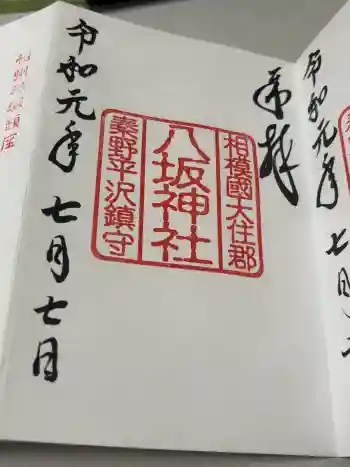 奉拝
相模國大住郡
八坂神社
秦野平沢鎮守
令和元年七月七日
令和元年
七月